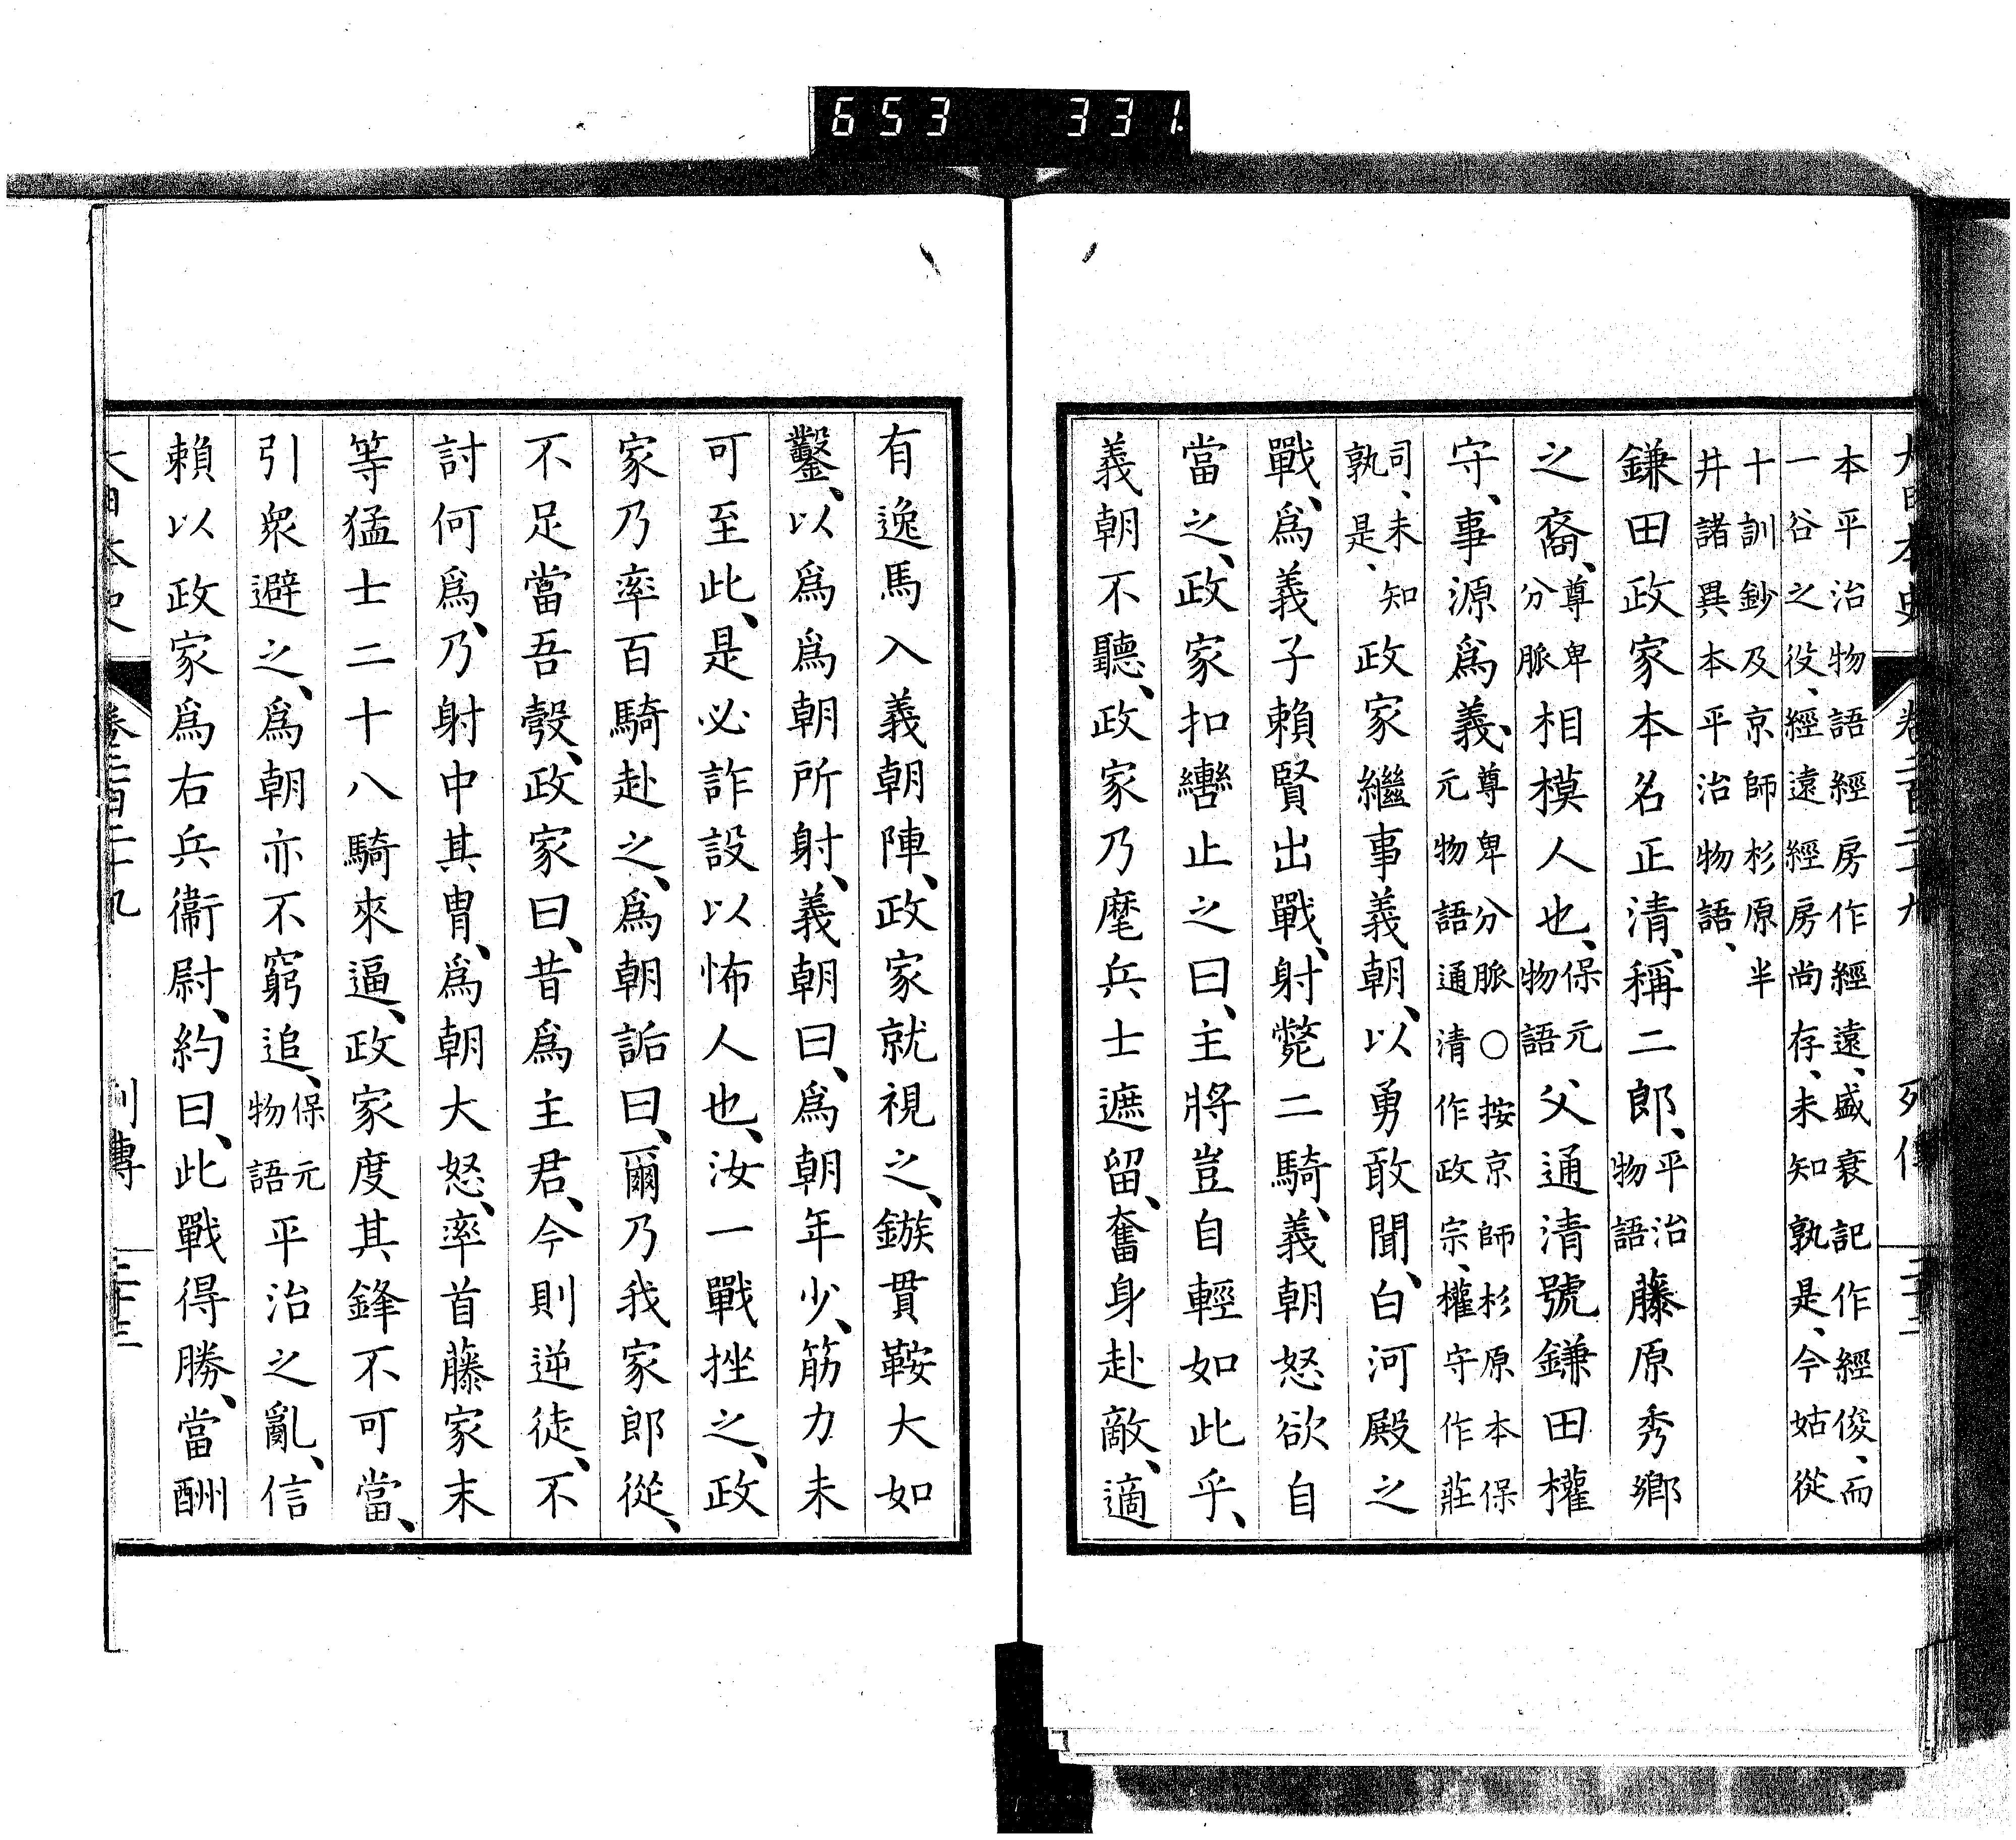 653 331
本平治物語經房作經遠、盛衰記作經俊、而
一谷之役、經遠經房尚存、未知孰是、今姑從
十訓鈔及京師杉原半
井諸異本平治物語、
鎌田政家本名正清、稱二郎、平治物語藤原秀鄉
之裔、尊卑分脈相模人也、保元物語父通清號鎌田權
守、事源爲義、尊卑分脈○按京師杉原本保元物語通清作政宗、權守作莊
司、未知孰是、政家繼事義朝、以勇敢聞、白河殿之
戰、爲義子賴賢出戰、射斃二騎、義朝怒欲自
當之、政家扣轡止之曰、主將豈自輕如此乎、
義朝不聽、政家乃麾兵士遮留、奮身赴敵、適
有逸馬入義朝陣、政家就視之、鏃貫鞍大如
鑿、以爲爲朝所射、義朝曰、爲朝年少、筋力未
可至此、是必詐設以怖人也、汝一戰挫之、政
家乃率百騎赴之、爲朝詬曰、爾乃我家郎從、
不足當吾彀、政家曰、昔爲主君、今則逆徒、不
討何爲、乃射中其冑、爲朝大怒、率首藤家末
等猛士二十八騎來逼、政家度其鋒不可當、
引衆避之、爲朝亦不窮追、保元物語平治之亂、信
賴以政家爲右兵衞尉、約曰、此戰得勝、當酬